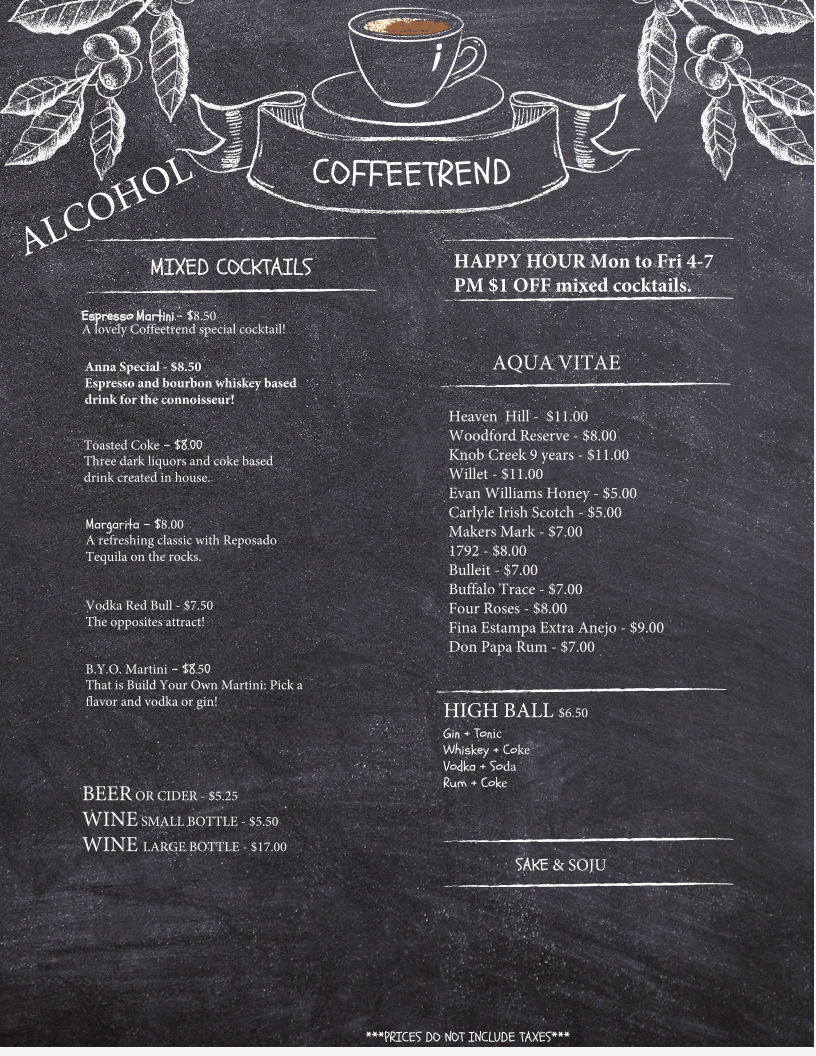 COFFEETREND
ALCOHOL
MIXED COCKTAILS
Espresso Martini – $8.50
A lovely Coffeetrend special cocktail!
Anna Special - $8.50
Espresso and bourbon whiskey based
drink for the connoisseur!
Toasted Coke – $8.00
Three dark liquors and coke based
drink created in house.
Margarita – $8.00
A refreshing classic with Reposado
Tequila on the rocks.
Vodka Red Bull - $7.50
The opposites attract!
B.Y.O. Martini – $8.50
That is Build Your Own Martini: Pick a
flavor and vodka or gin!
BEER OR CIDER - $5.25
WINE SMALL BOTTLE - $5.50
WINE LARGE BOTTLE - $17.00
HAPPY HOUR Mon to Fri 4-7
PM $1 OFF mixed cocktails.
AQUA VITAE
Heaven Hill - $11.00
Woodford Reserve - $8.00
Knob Creek 9 years - $11.00
Willet - $11.00
Evan Williams Honey - $5.00
Carlyle Irish Scotch - $5.00
Makers Mark - $7.00
1792 - $8.00
Bulleit - $7.00
Buffalo Trace - $7.00
Four Roses - $8.00
Fina Estampa Extra Anejo - $9.00
Don Papa Rum - $7.00
HIGH BALL $6.50
Gin + Tonic
Whiskey + Coke
Vodka + Soda
Rum + Coke
SAKE & SOJU
***PRICES DO NOT INCLUDE TAXES***